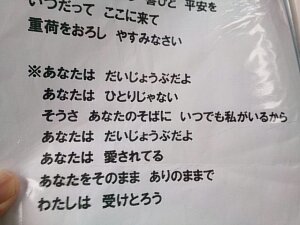 喜びと 平安を
いつだって ここに来て
重荷をおろし やすみなさい
※あなたは だいじょうぶだよ
あなたは ひとりじゃない
そうさ あなたのそばに いつでも私がいるから
あなたは だいじょうぶだよ
あなたは 愛されてる
あなたをそのまま ありのままで
わたしは 受けとろう